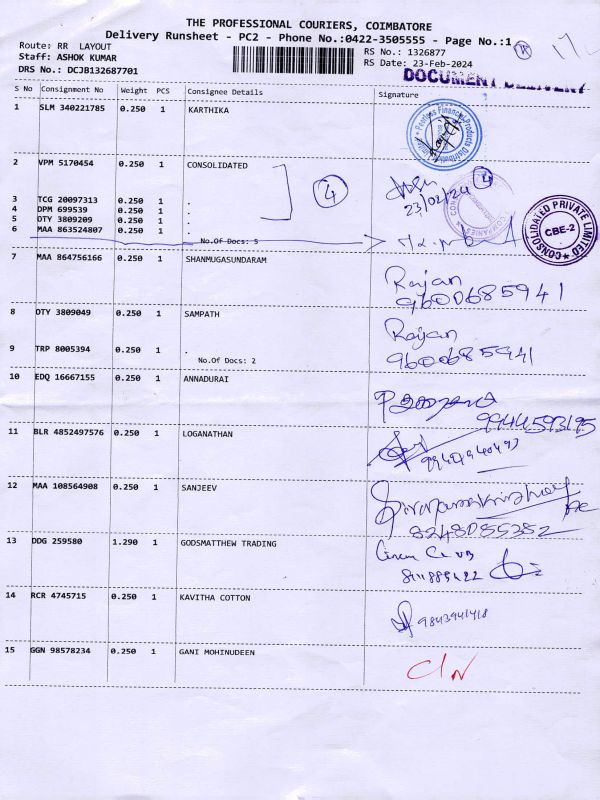 THE PROFESSIONAL COURIERS, COIMBATORE
Delivery Runsheet - PC2 - Phone No.:0422-3505555 - Page No.:1
Route: RR LAYOUT
Staff: ASHOK KUMAR
DRS No.: DCJB132687701
RS No.: 1326877
RS Date: 23-Feb-2024
DOCUMENT DELIVERY
S No Consignment No Weight PCS Consignee Details Signature
1 SLM 340221785 0.250 1 KARTHIKA
2 VPM 5170454 0.250 1 CONSOLIDATED
4
4
23/02/24
3 TCG 20097313 0.250 1 .
4 DPM 699539 0.250 1 .
5 DTY 3809209 0.250 1 .
6 MAA 863524807 0.250 1 .
No.Of Docs: 5
CONSOLIDATED PRIVATE LIMITED
CBE-2
7 MAA 864756166 0.250 1 SHANMUGASUNDARAM
Rajan
9600685941
8 DTY 3809049 0.250 1 SAMPATH
Rajan
9600685941
9 TRP 8005394 0.250 1 .
No.Of Docs: 2
10 EDQ 16667155 0.250 1 ANNADURAI
9944593195
11 BLR 4852497576 0.250 1 LOGANATHAN
12 MAA 108564908 0.250 1 SANJEEV
8248055352
13 DDG 259580 1.290 1 GODSMATTHEW TRADING
14 RCR 4745715 0.250 1 KAVITHA COTTON
9843941418
15 GGN 98578234 0.250 1 GANI MOHINUDEEN